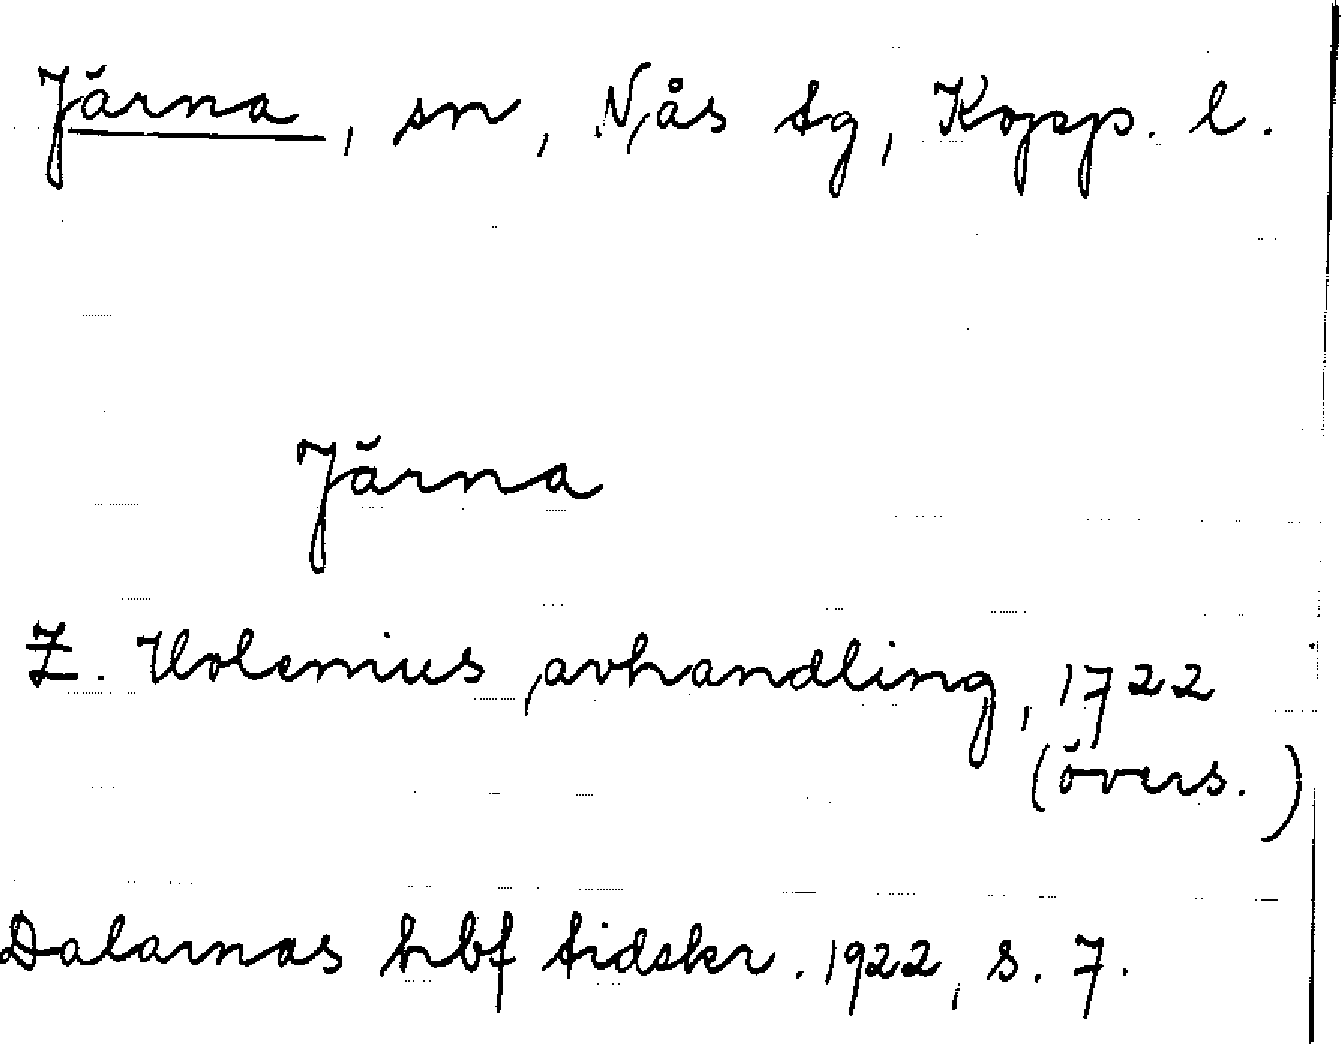 Järna, sn, Nås tg, Kopp. l.
Järna
Z. Holenius avhandling, 1722
(övers.)
Dalarnas hbf tidskr. 1922, s. 7.